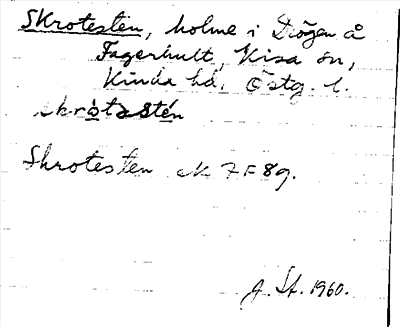 Skrotesten, holme i Drögen å
Fagerhult, Kisa sn,
Kinda hd, Östg. l.
skròtastén
Skrotesten ek 7F 8g.
J. St. 1960.